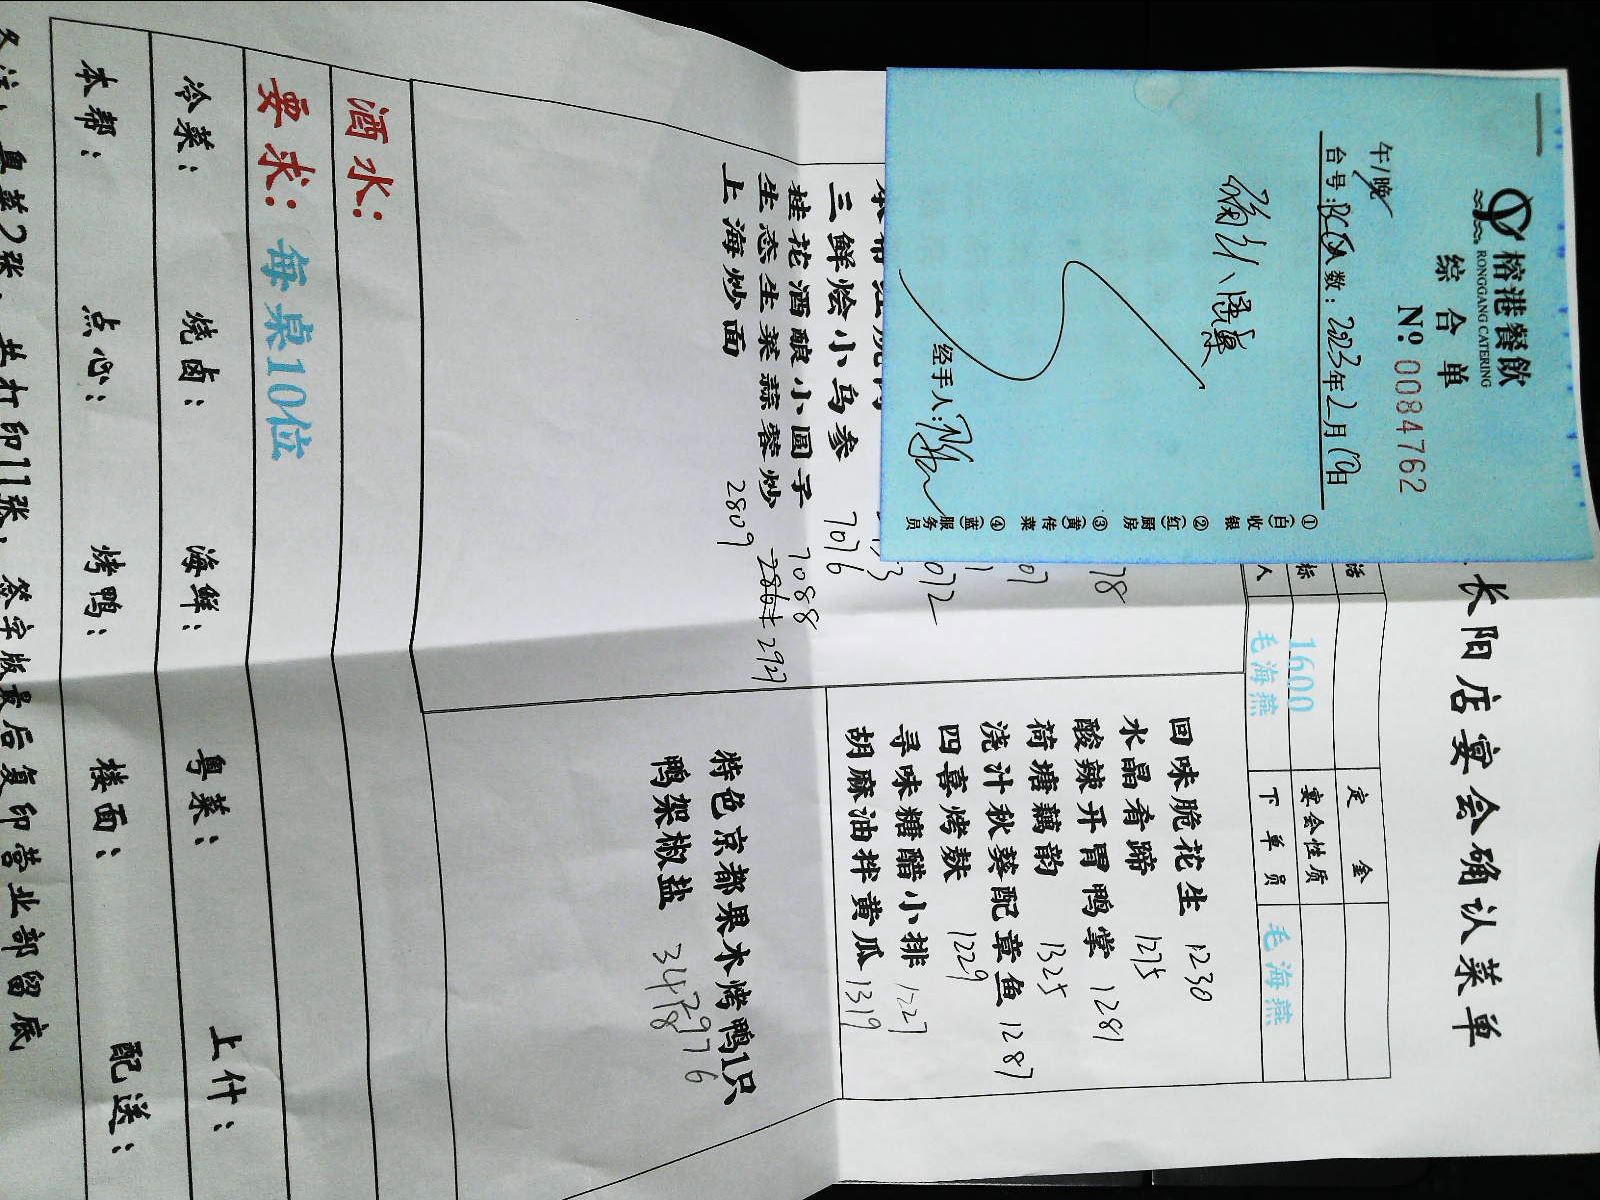 榕港餐飲
RONGGANG CATERING
综合单
№: 0084762
午/晚
台号: 人数: 2023年2月19日
经手人:
①(白)收银 ②(红)厨房 ③(黄)传菜 ④(蓝)服务员
长阳店宴会确认菜单
定金
标 1600 宴会性质
人 毛海燕 下单员 毛海燕
回味脆花生 1230
水晶肴蹄 1275
酸辣开胃鸭掌 1281
荷塘藕韵 1325
浇汁秋葵配章鱼 1287
四喜烤麸 1229
寻味糖醋小排 1227
胡麻油拌黄瓜 1319
三鲜烩小乌参 7076
桂花酒酿小圆子 7088
生态生菜蒜蓉炒 2927
上海炒面 2809
特色京都果木烤鸭1只 2976
鸭架椒盐 3478
酒水:
要求: 每桌10位
冷菜: 烧卤: 海鲜: 粤菜: 上什:
本帮: 点心: 烤鸭: 楼面: 配送:
粤菜2张,共打印11张,签字版最后复印营业部留底